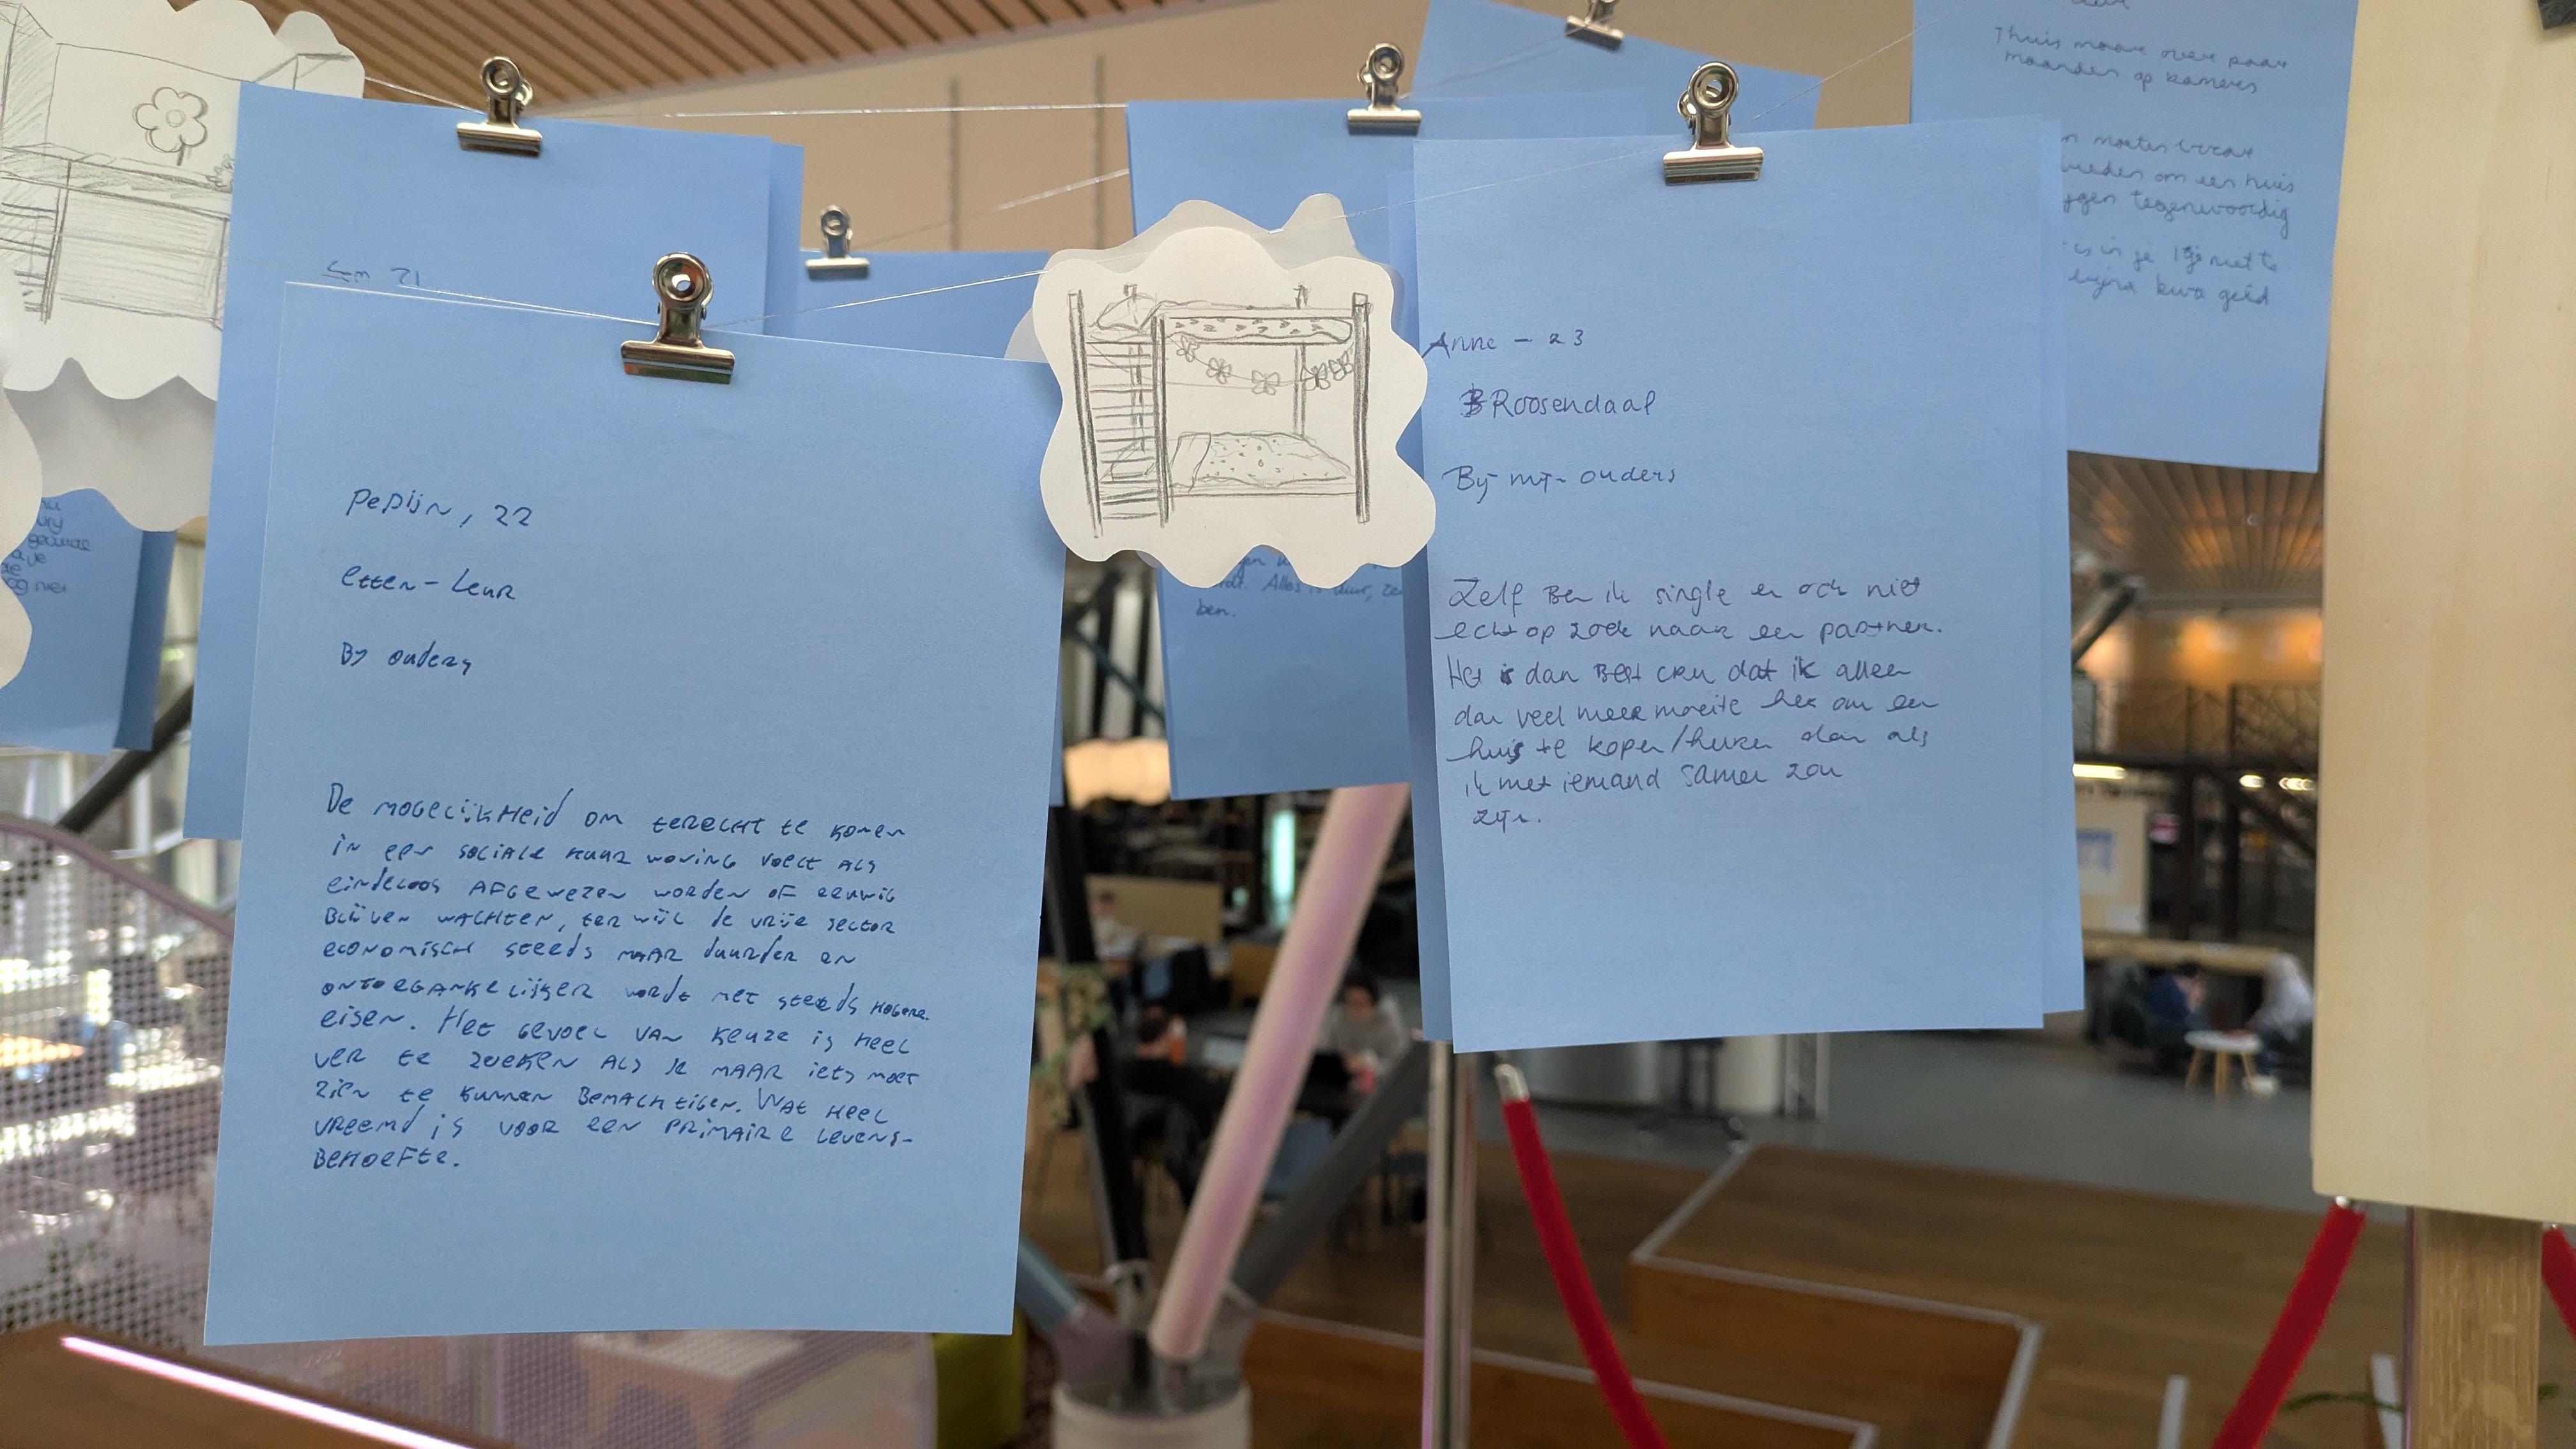 Pepijn, 22
Etten-Leur
Bij ouders
De mogelijkheid om terecht te komen
in een sociale huur woning voelt als
eindeloos afgewezen worden of eeuwig
blijven wachten, terwijl de vrije sector
economisch steeds maar duurder en
ontoegankelijker wordt met steeds hogere
eisen. Het gevoel van keuze is heel
ver te zoeken als je maar iets moet
zien te kunnen bemachtigen. Wat heel
vreemd is voor een primaire levens-
behoefte.
Alles is duur,
ben.
Anne - 23
Roosendaal
Bij mijn ouders
Zelf ben ik single en ook niet
echt op zoek naar een partner.
Het is dan best cru dat ik alleen
dan veel meer moeite heb om een
huis te kopen/huren dan als
ik met iemand samen zou
zijn.
Thuis maar over paar
maanden op kamers
moeten
om een huis
tegenwoordig
in je 1tje niet te
bijna kwa geld